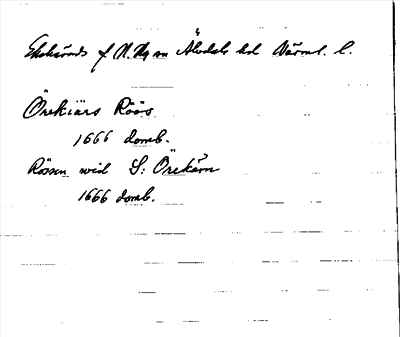 Ekshärads f N. Ny sn Älvdals hd Värml. l.
Örekiärs Röös
1666 domb.
Rösen wid S: Örekärn
1666 domb.